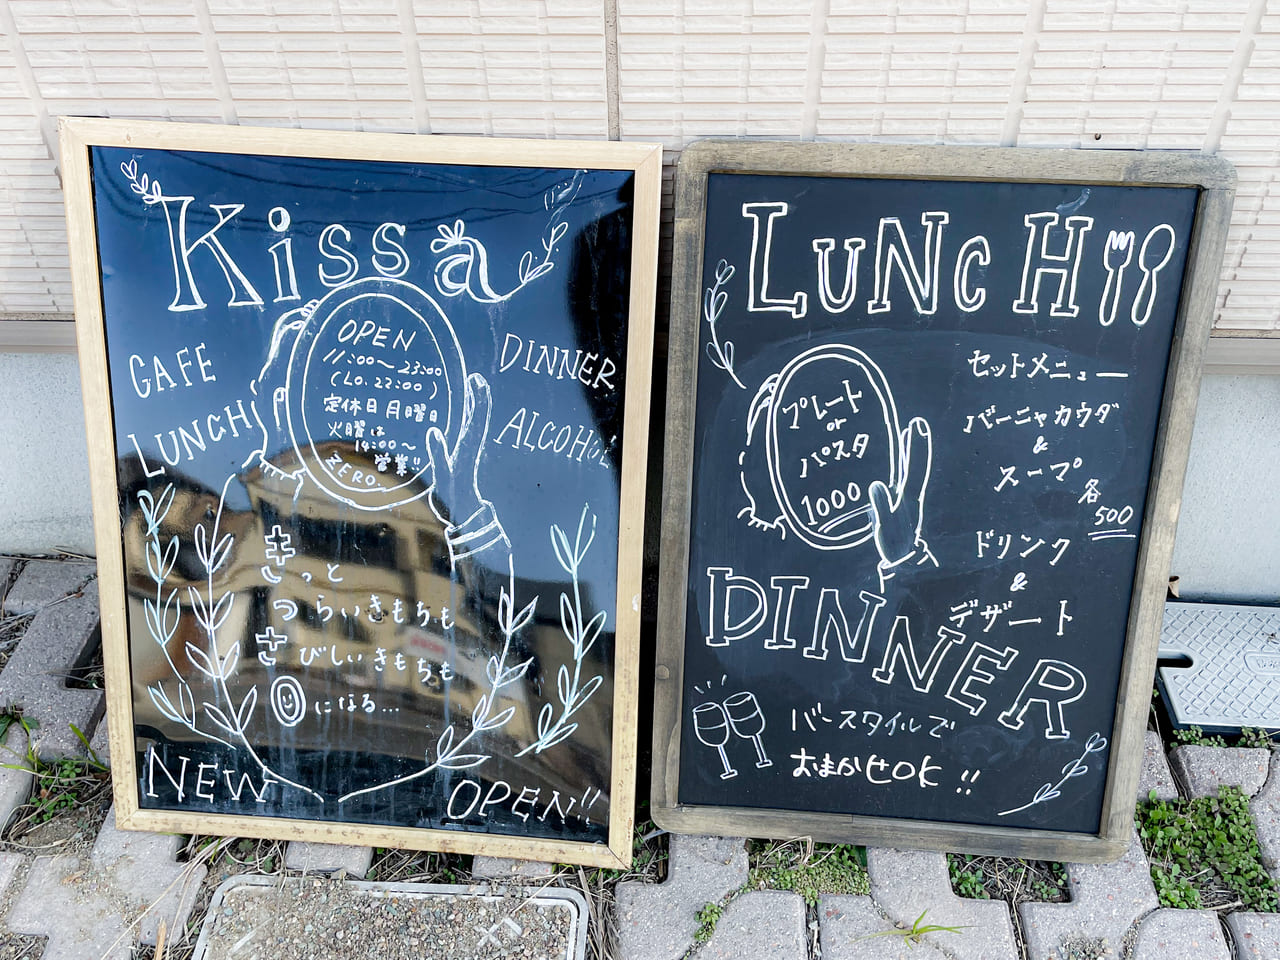 Kissa
OPEN
11:00〜23:00
(LO.22:00)
定休日 月曜日
火曜は
14:00〜
営業!!
ZERO.
CAFE
LUNCH
DINNER
ALCOHOL
きっと
つらいきもちも
さびしいきもちも
になる...
NEW OPEN!!
LUNCH
プレート
or
パスタ
1000
セットメニュー
バーニャカウダ
&
スープ
各
500
ドリンク
&
デザート
DINNER
バースタイルで
おまかせOK!!